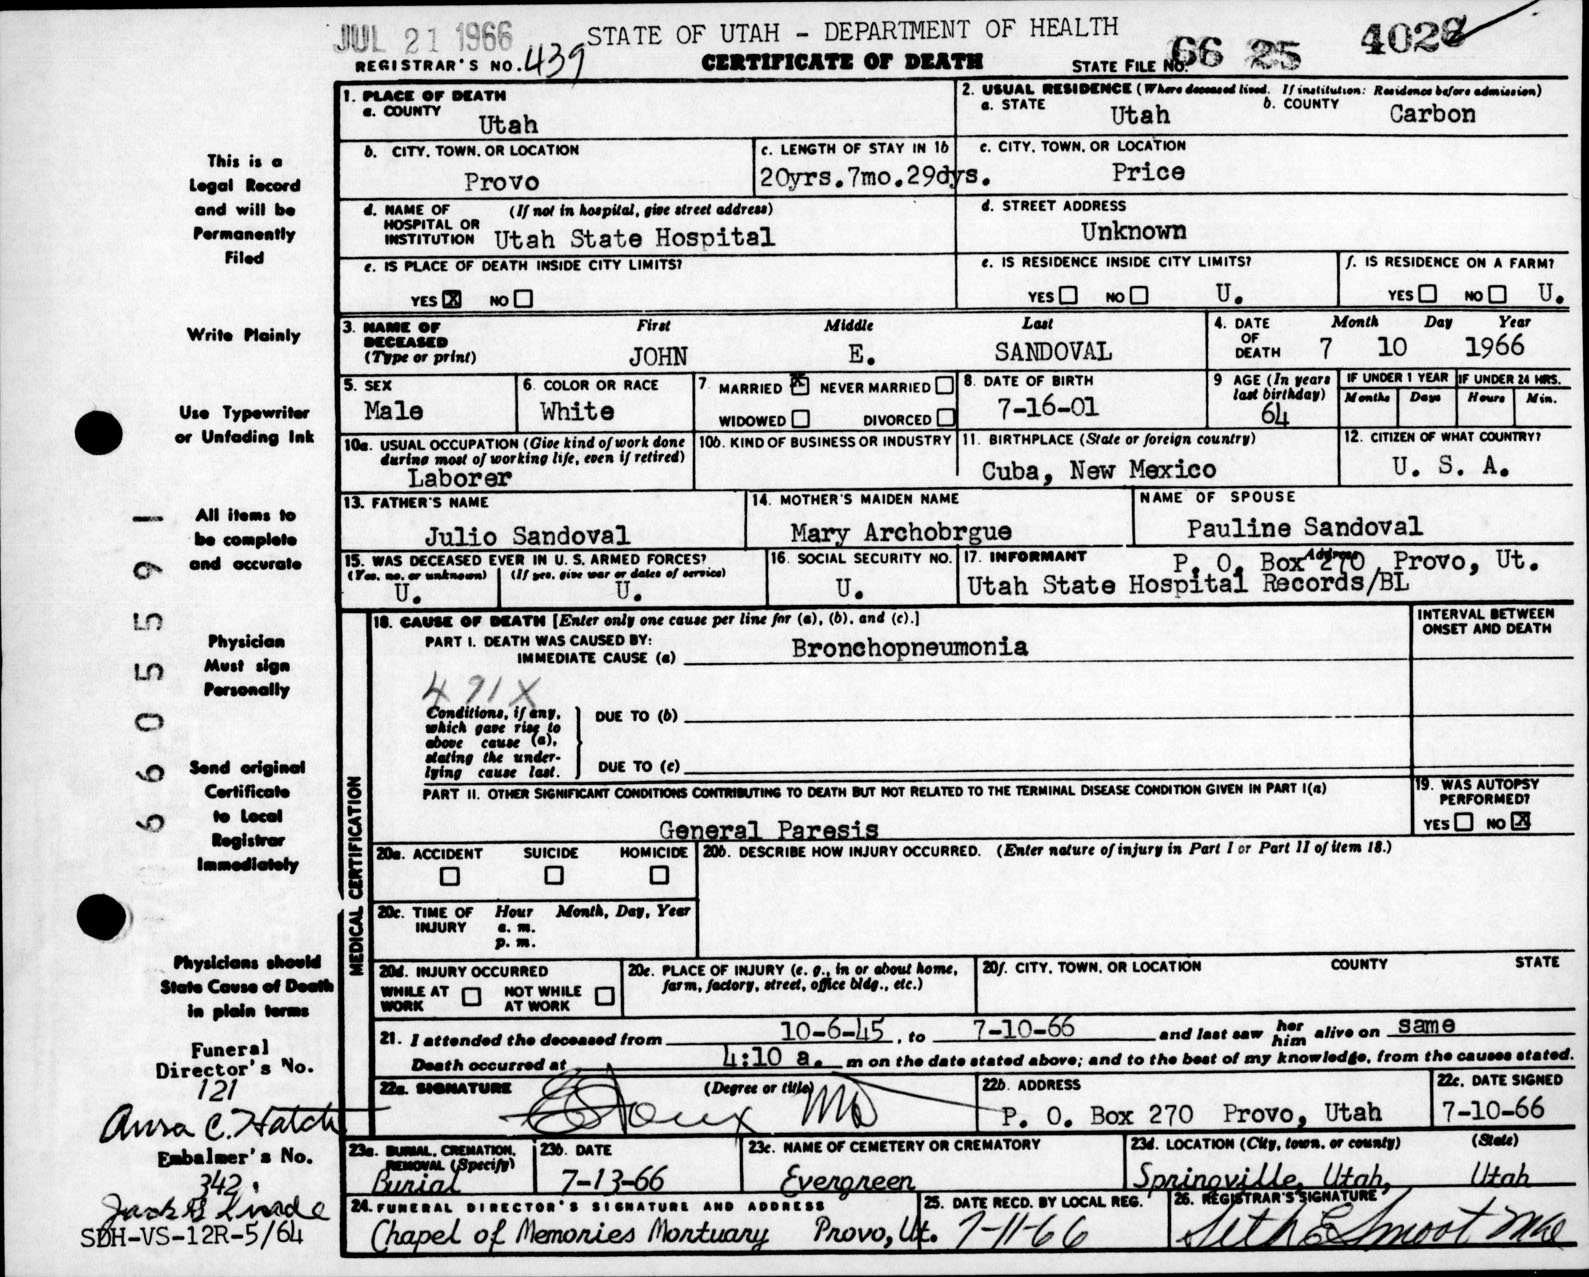 JUL 21 1966
STATE OF UTAH - DEPARTMENT OF HEALTH
66 25 4028
REGISTRAR'S NO. 439
CERTIFICATE OF DEATH
STATE FILE NO.
1. PLACE OF DEATH
a. COUNTY
Utah
2. USUAL RESIDENCE (Where deceased lived. If institution: Residence before admission)
a. STATE Utah b. COUNTY Carbon
b. CITY, TOWN, OR LOCATION
Provo
c. LENGTH OF STAY IN 1b
20yrs.7mo.29dys.
c. CITY, TOWN, OR LOCATION
Price
d. NAME OF HOSPITAL OR INSTITUTION (If not in hospital, give street address)
Utah State Hospital
d. STREET ADDRESS
Unknown
e. IS PLACE OF DEATH INSIDE CITY LIMITS?
YES X NO
e. IS RESIDENCE INSIDE CITY LIMITS?
YES NO U.
f. IS RESIDENCE ON A FARM?
YES NO U.
3. NAME OF DECEASED (Type or print)
First Middle Last
JOHN E. SANDOVAL
4. DATE OF DEATH
Month Day Year
7 10 1966
5. SEX
Male
6. COLOR OR RACE
White
7. MARRIED X NEVER MARRIED
WIDOWED DIVORCED
8. DATE OF BIRTH
7-16-01
9 AGE (In years last birthday)
64
IF UNDER 1 YEAR
Months Days
IF UNDER 24 HRS.
Hours Min.
10a. USUAL OCCUPATION (Give kind of work done during most of working life, even if retired)
Laborer
10b. KIND OF BUSINESS OR INDUSTRY
11. BIRTHPLACE (State or foreign country)
Cuba, New Mexico
12. CITIZEN OF WHAT COUNTRY?
U. S. A.
13. FATHER'S NAME
Julio Sandoval
14. MOTHER'S MAIDEN NAME
Mary Archobrgue
NAME OF SPOUSE
Pauline Sandoval
15. WAS DECEASED EVER IN U. S. ARMED FORCES?
(Yes, no, or unknown) (If yes, give war or dates of service)
U. U.
16. SOCIAL SECURITY NO.
U.
17. INFORMANT Address
P. O. Box 270 Provo, Ut.
Utah State Hospital Records/BL
MEDICAL CERTIFICATION
18. CAUSE OF DEATH [Enter only one cause per line for (a), (b), and (c).]
INTERVAL BETWEEN ONSET AND DEATH
PART I. DEATH WAS CAUSED BY:
IMMEDIATE CAUSE (a) Bronchopneumonia
491X
Conditions, if any, which gave rise to above cause (a), stating the underlying cause last.
DUE TO (b)
DUE TO (c)
PART II. OTHER SIGNIFICANT CONDITIONS CONTRIBUTING TO DEATH BUT NOT RELATED TO THE TERMINAL DISEASE CONDITION GIVEN IN PART I(a)
General Paresis
19. WAS AUTOPSY PERFORMED?
YES NO X
20a. ACCIDENT SUICIDE HOMICIDE
20b. DESCRIBE HOW INJURY OCCURRED. (Enter nature of injury in Part I or Part II of item 18.)
20c. TIME OF INJURY
Hour Month, Day, Year
a. m.
p. m.
20d. INJURY OCCURRED
WHILE AT WORK NOT WHILE AT WORK
20e. PLACE OF INJURY (e. g., in or about home, farm, factory, street, office bldg., etc.)
20f. CITY, TOWN, OR LOCATION COUNTY STATE
21. I attended the deceased from 10-6-45, to 7-10-66 and last saw her him alive on same
Death occurred at 4:10 a. m on the date stated above; and to the best of my knowledge, from the causes stated.
22a. SIGNATURE (Degree or title)
MD
22b. ADDRESS
P. O. Box 270 Provo, Utah
22c. DATE SIGNED
7-10-66
23a. BURIAL, CREMATION, REMOVAL (Specify)
Burial
23b. DATE
7-13-66
23c. NAME OF CEMETERY OR CREMATORY
Evergreen
23d. LOCATION (City, town, or county) (State)
Springville, Utah, Utah
24. FUNERAL DIRECTOR'S SIGNATURE AND ADDRESS
Chapel of Memories Mortuary Provo, Ut.
25. DATE RECD. BY LOCAL REG.
7-11-66
26. REGISTRAR'S SIGNATURE
Seth E Smoot
This is a
Legal Record
and will be
Permanently
Filed
Write Plainly
Use Typewriter
or Unfading Ink
All items to
be complete
and accurate
Physician
Must sign
Personally
Send original
Certificate
to Local
Registrar
Immediately
Physicians should
State Cause of Death
in plain terms
Funeral
Director's No.
121
C. Hatch
Embalmer's No.
342
SDH-VS-12R-5/64
660 5 5591